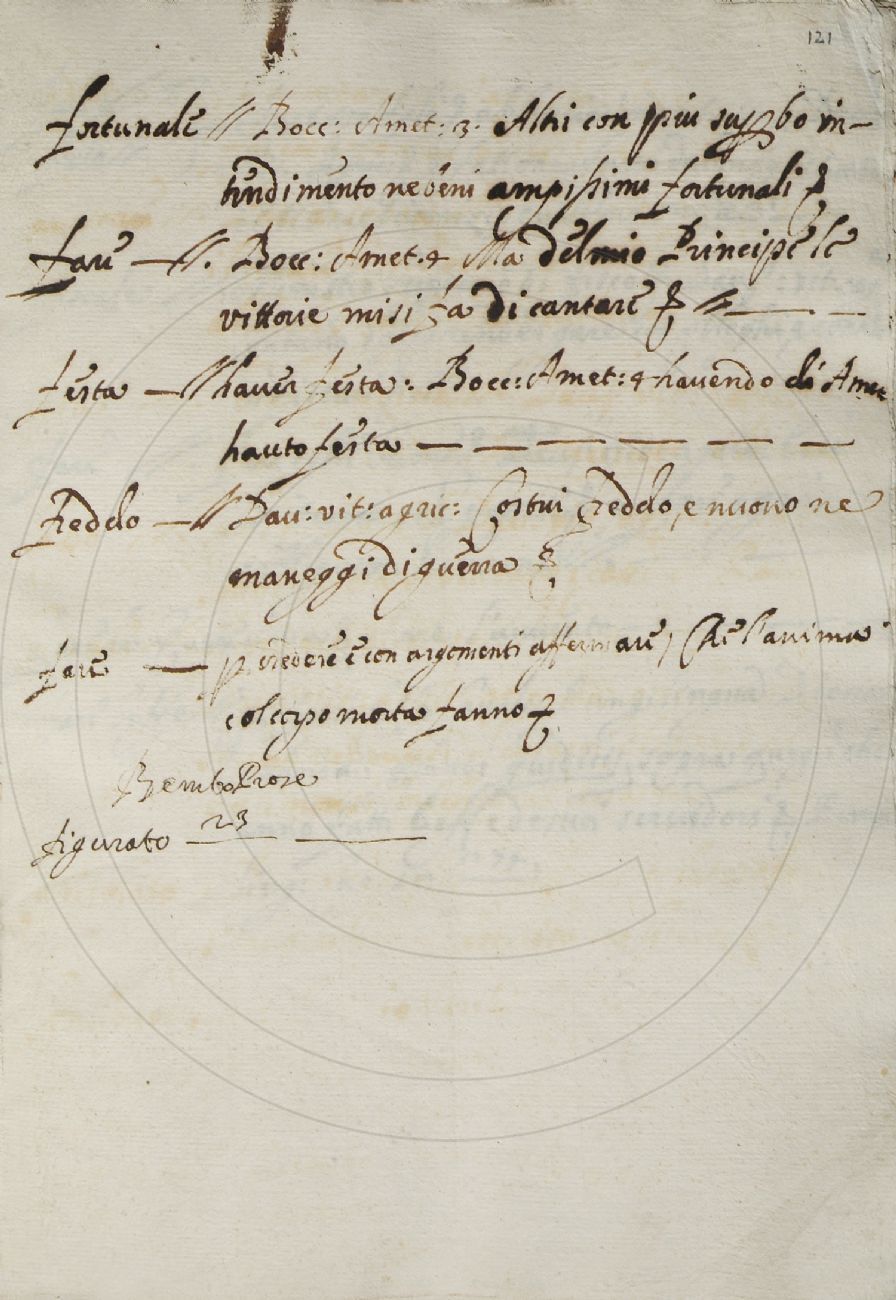 121
fortunale // Bocc: Amet: 3. Altri con più superbo in-
tendimento ne beni ampissimi fortunali
fare — //. Bocc: Amet. 4 Ma del mio Principe le
vittorie mi si fa di cantare
festa — // haver festa: Bocc: Amet: 4 havendo di Amet
hauto festa
freddo — // Dav: vit: agric: Costui freddo, e nuovo ne
maneggi di guerra
fare — p credere e con argomenti affermare, Che l'anima
col corpo morta fanno
Bembo Prose
figurato 23